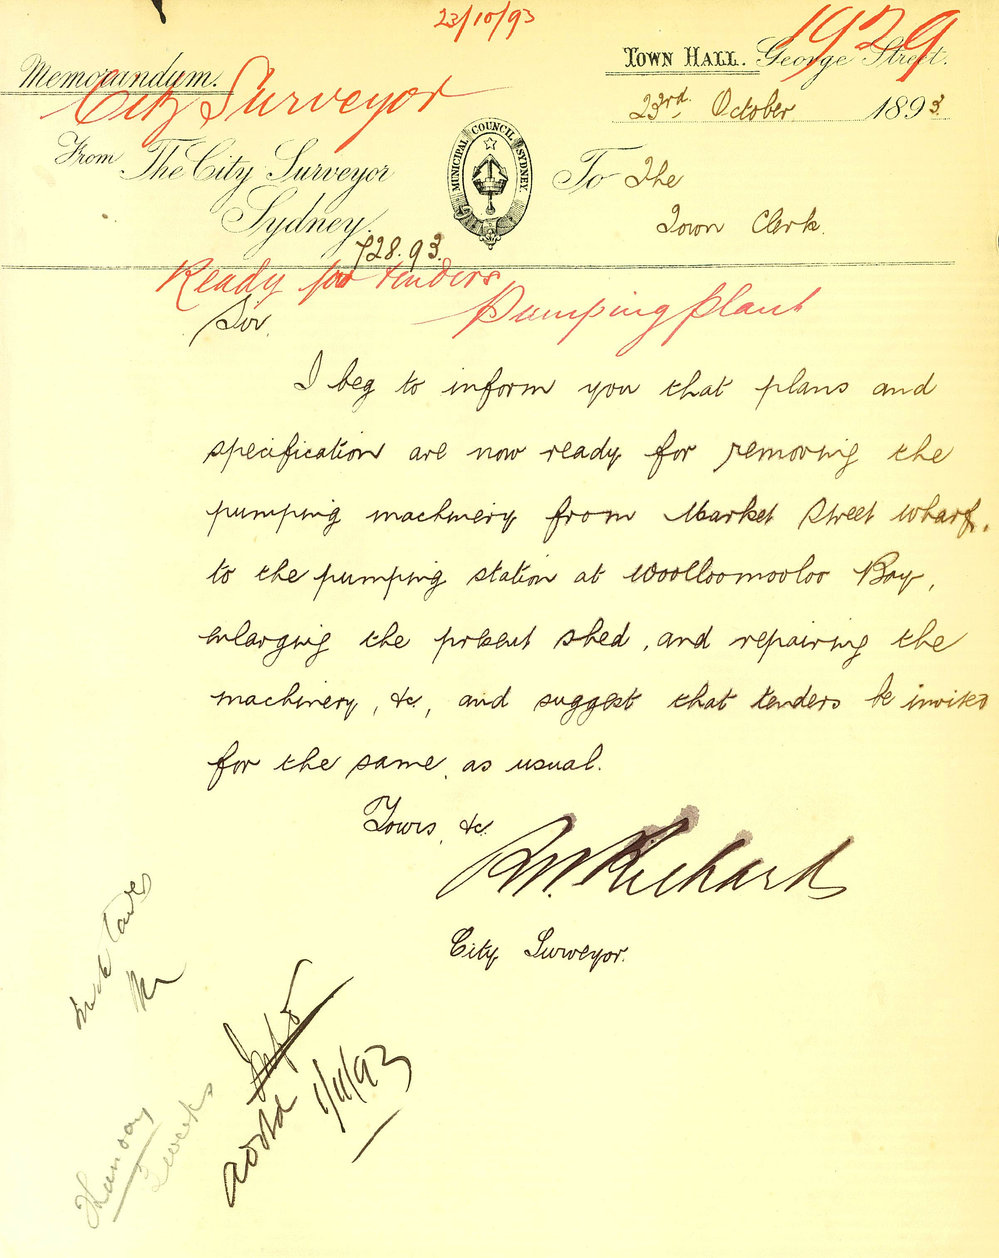 23/10/93
1929
Memorandum.
City Surveyor
TOWN HALL. George Street.
23rd. October 1893.
From The City Surveyor
Sydney.
MUNICIPAL COUNCIL SYDNEY.
To The
Town Clerk.
728.93.
Ready for tenders
Pumping plant
Sir,
I beg to inform you that plans and
specification are now ready for removing the
pumping machinery from Market Street wharf,
to the pumping station at Woolloomooloo Bay,
enlarging the present shed, and repairing the
machinery, &c., and suggest that tenders be invited
for the same, as usual.
Yours, &c.
R M. Richards
City Surveyor.
Thursday
2 weeks
1/11/93